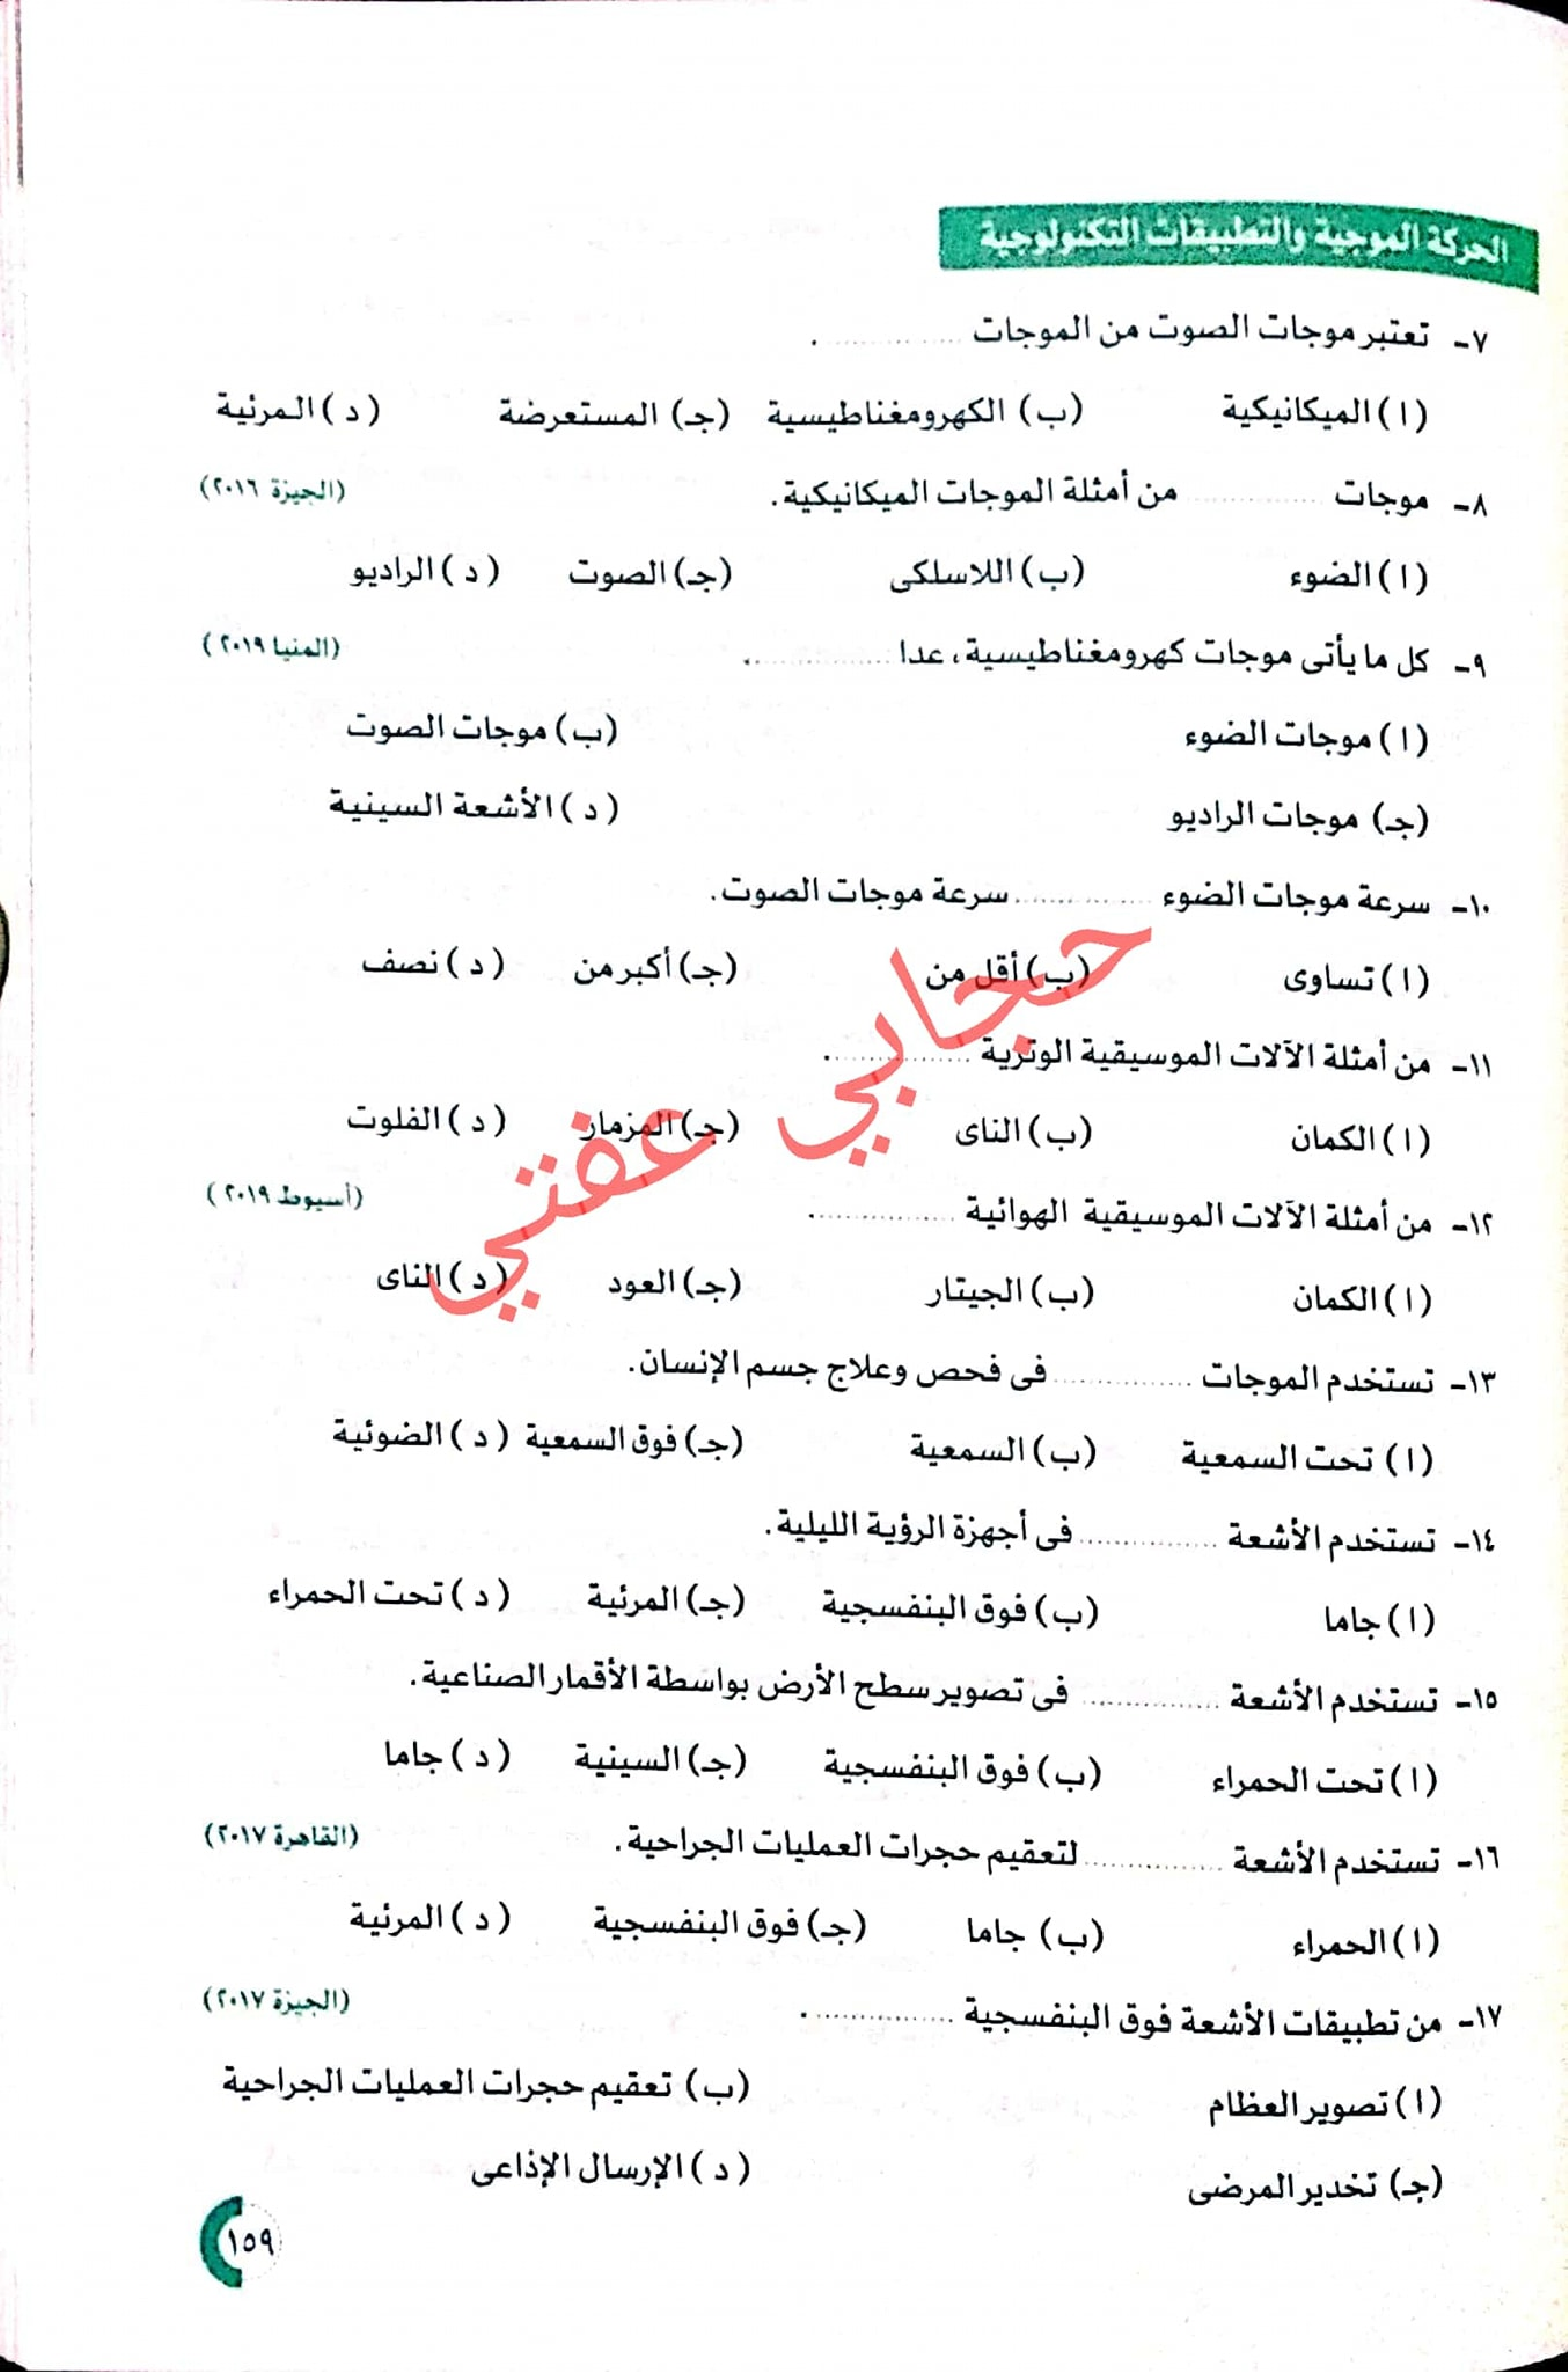 الحركة الموجية والتطبيقات التكنولوجية
٧- تعتبر موجات الصوت من الموجات ............ .
(ا) الميكانيكية (ب) الكهرومغناطيسية (جـ) المستعرضة (د) المرئية
٨- موجات ............ من أمثلة الموجات الميكانيكية. (الجيزة ٢٠١٦)
(ا) الضوء (ب) اللاسلكى (جـ) الصوت (د) الراديو
٩- كل ما يأتى موجات كهرومغناطيسية، عدا ............ . (المنيا ٢٠١٩)
(ا) موجات الضوء (ب) موجات الصوت
(جـ) موجات الراديو (د) الأشعة السينية
١٠- سرعة موجات الضوء ............ سرعة موجات الصوت.
(ا) تساوى (ب) أقل من (جـ) أكبر من (د) نصف
١١- من أمثلة الآلات الموسيقية الوترية ............ .
(ا) الكمان (ب) الناى (جـ) المزمار (د) الفلوت
١٢- من أمثلة الآلات الموسيقية الهوائية ............ . (أسيوط ٢٠١٩)
(ا) الكمان (ب) الجيتار (جـ) العود (د) الناى
حجابي عفتي
١٣- تستخدم الموجات ............ فى فحص وعلاج جسم الإنسان.
(ا) تحت السمعية (ب) السمعية (جـ) فوق السمعية (د) الضوئية
١٤- تستخدم الأشعة ............ فى أجهزة الرؤية الليلية.
(ا) جاما (ب) فوق البنفسجية (جـ) المرئية (د) تحت الحمراء
١٥- تستخدم الأشعة ............ فى تصوير سطح الأرض بواسطة الأقمار الصناعية.
(ا) تحت الحمراء (ب) فوق البنفسجية (جـ) السينية (د) جاما
١٦- تستخدم الأشعة ............ لتعقيم حجرات العمليات الجراحية. (القاهرة ٢٠١٧)
(ا) الحمراء (ب) جاما (جـ) فوق البنفسجية (د) المرئية
١٧- من تطبيقات الأشعة فوق البنفسجية ............ . (الجيزة ٢٠١٧)
(ا) تصوير العظام (ب) تعقيم حجرات العمليات الجراحية
(جـ) تخدير المرضى (د) الإرسال الإذاعى
١٥٩